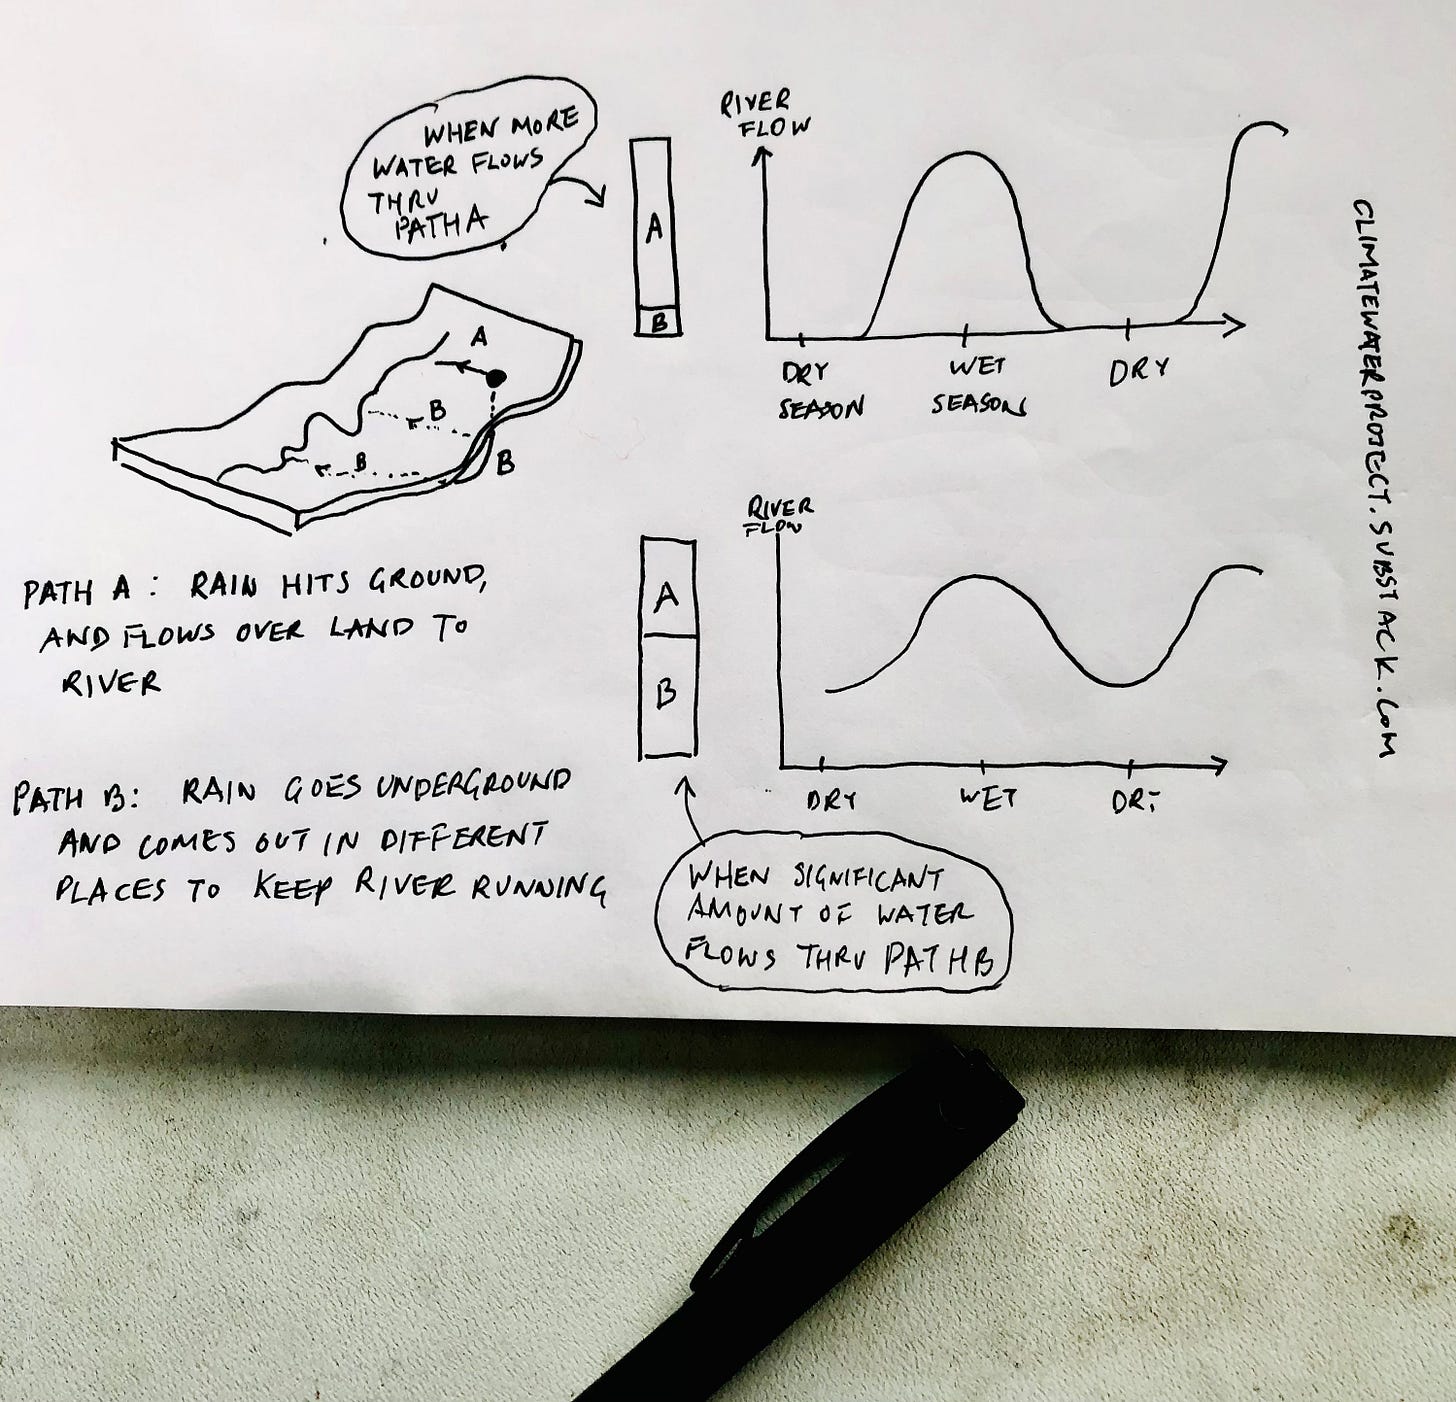 WHEN MORE
WATER FLOWS
THRU
PATH A
A
B
RIVER
FLOW
DRY
SEASON
WET
SEASON
DRY
A
B
B
B
PATH A: RAIN HITS GROUND,
AND FLOWS OVER LAND TO
RIVER
PATH B: RAIN GOES UNDERGROUND
AND COMES OUT IN DIFFERENT
PLACES TO KEEP RIVER RUNNING
RIVER
FLOW
A
B
DRY
WET
DRY
WHEN SIGNIFICANT
AMOUNT OF WATER
FLOWS THRU PATH B
CLIMATEWATERPROJECT.SUBSTACK.COM